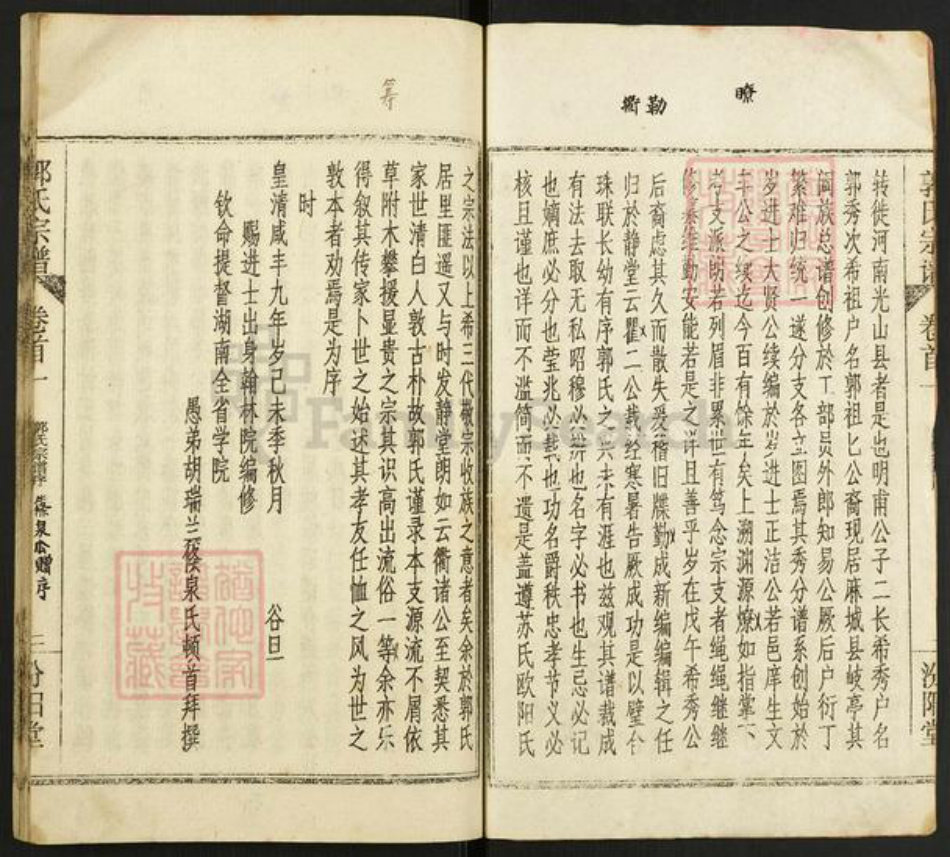 瞭
勒
衢
郭氏宗谱 卷首一
汾阳堂
转徙河南光山县者是也明甫公子二长希秀户名
郭秀次希祖户名郭祖匕公裔现居麻城县岐亭其
阖族总谱创修於工部员外郎知易公厥后户衍丁
繁难归统一遂分支各立图焉其秀分谱系创始於
岁进士大贤公续编於岁进士正洁公若邑庠生文
丰公之续迄今百有馀年矣上溯渊源燎如指掌下
考支派朗若列眉非累世有笃念宗支者绳绳继继
修纂维勤安能若是之详且善乎岁在戊午希秀公
后裔虑其久而散失爰稽旧牒勤成新编编辑之任
归於静堂云瞿二公裁经寒暑告厥成功是以璧合
珠联长幼有序郭氏之兴未有涯也兹观其谱裁成
有法去取无私昭穆必辨也名字必书也生忌必记
也嫡庶必分也茔兆必载也功名爵秩忠孝节义必
核且谨也详而不滥简而不遗是盖遵苏氏欧阳氏
筹
之宗法以上希三代敬宗收族之意者矣余於郭氏
居里匪遥又与时发静堂朗如云衢诸公至契悉其
家世清白人敦古朴故郭氏谨录本支源流不屑依
草附木攀援显贵之宗其识高出流俗一等余亦乐
得叙其传家卜世之始述其孝友任恤之风为世之
敦本者劝焉是为序
时
皇清咸丰九年岁己未季秋月 谷旦
赐进士出身翰林院编修
钦命提督湖南全省学院
愚弟胡瑞兰筱泉氏顿首拜撰
郭氏宗谱 卷首一 三 汾阳堂
FamilySearch